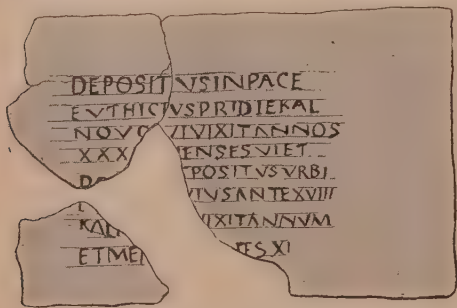 DEPOSITVSINPACE
EVTHICIVSPRIDIEKAL
VIVIXITANNOS
XXX ENSESVIET
POSITVSVRBI
ANTEXVIIII
KAL VIXITANNVM
ETME ESXI